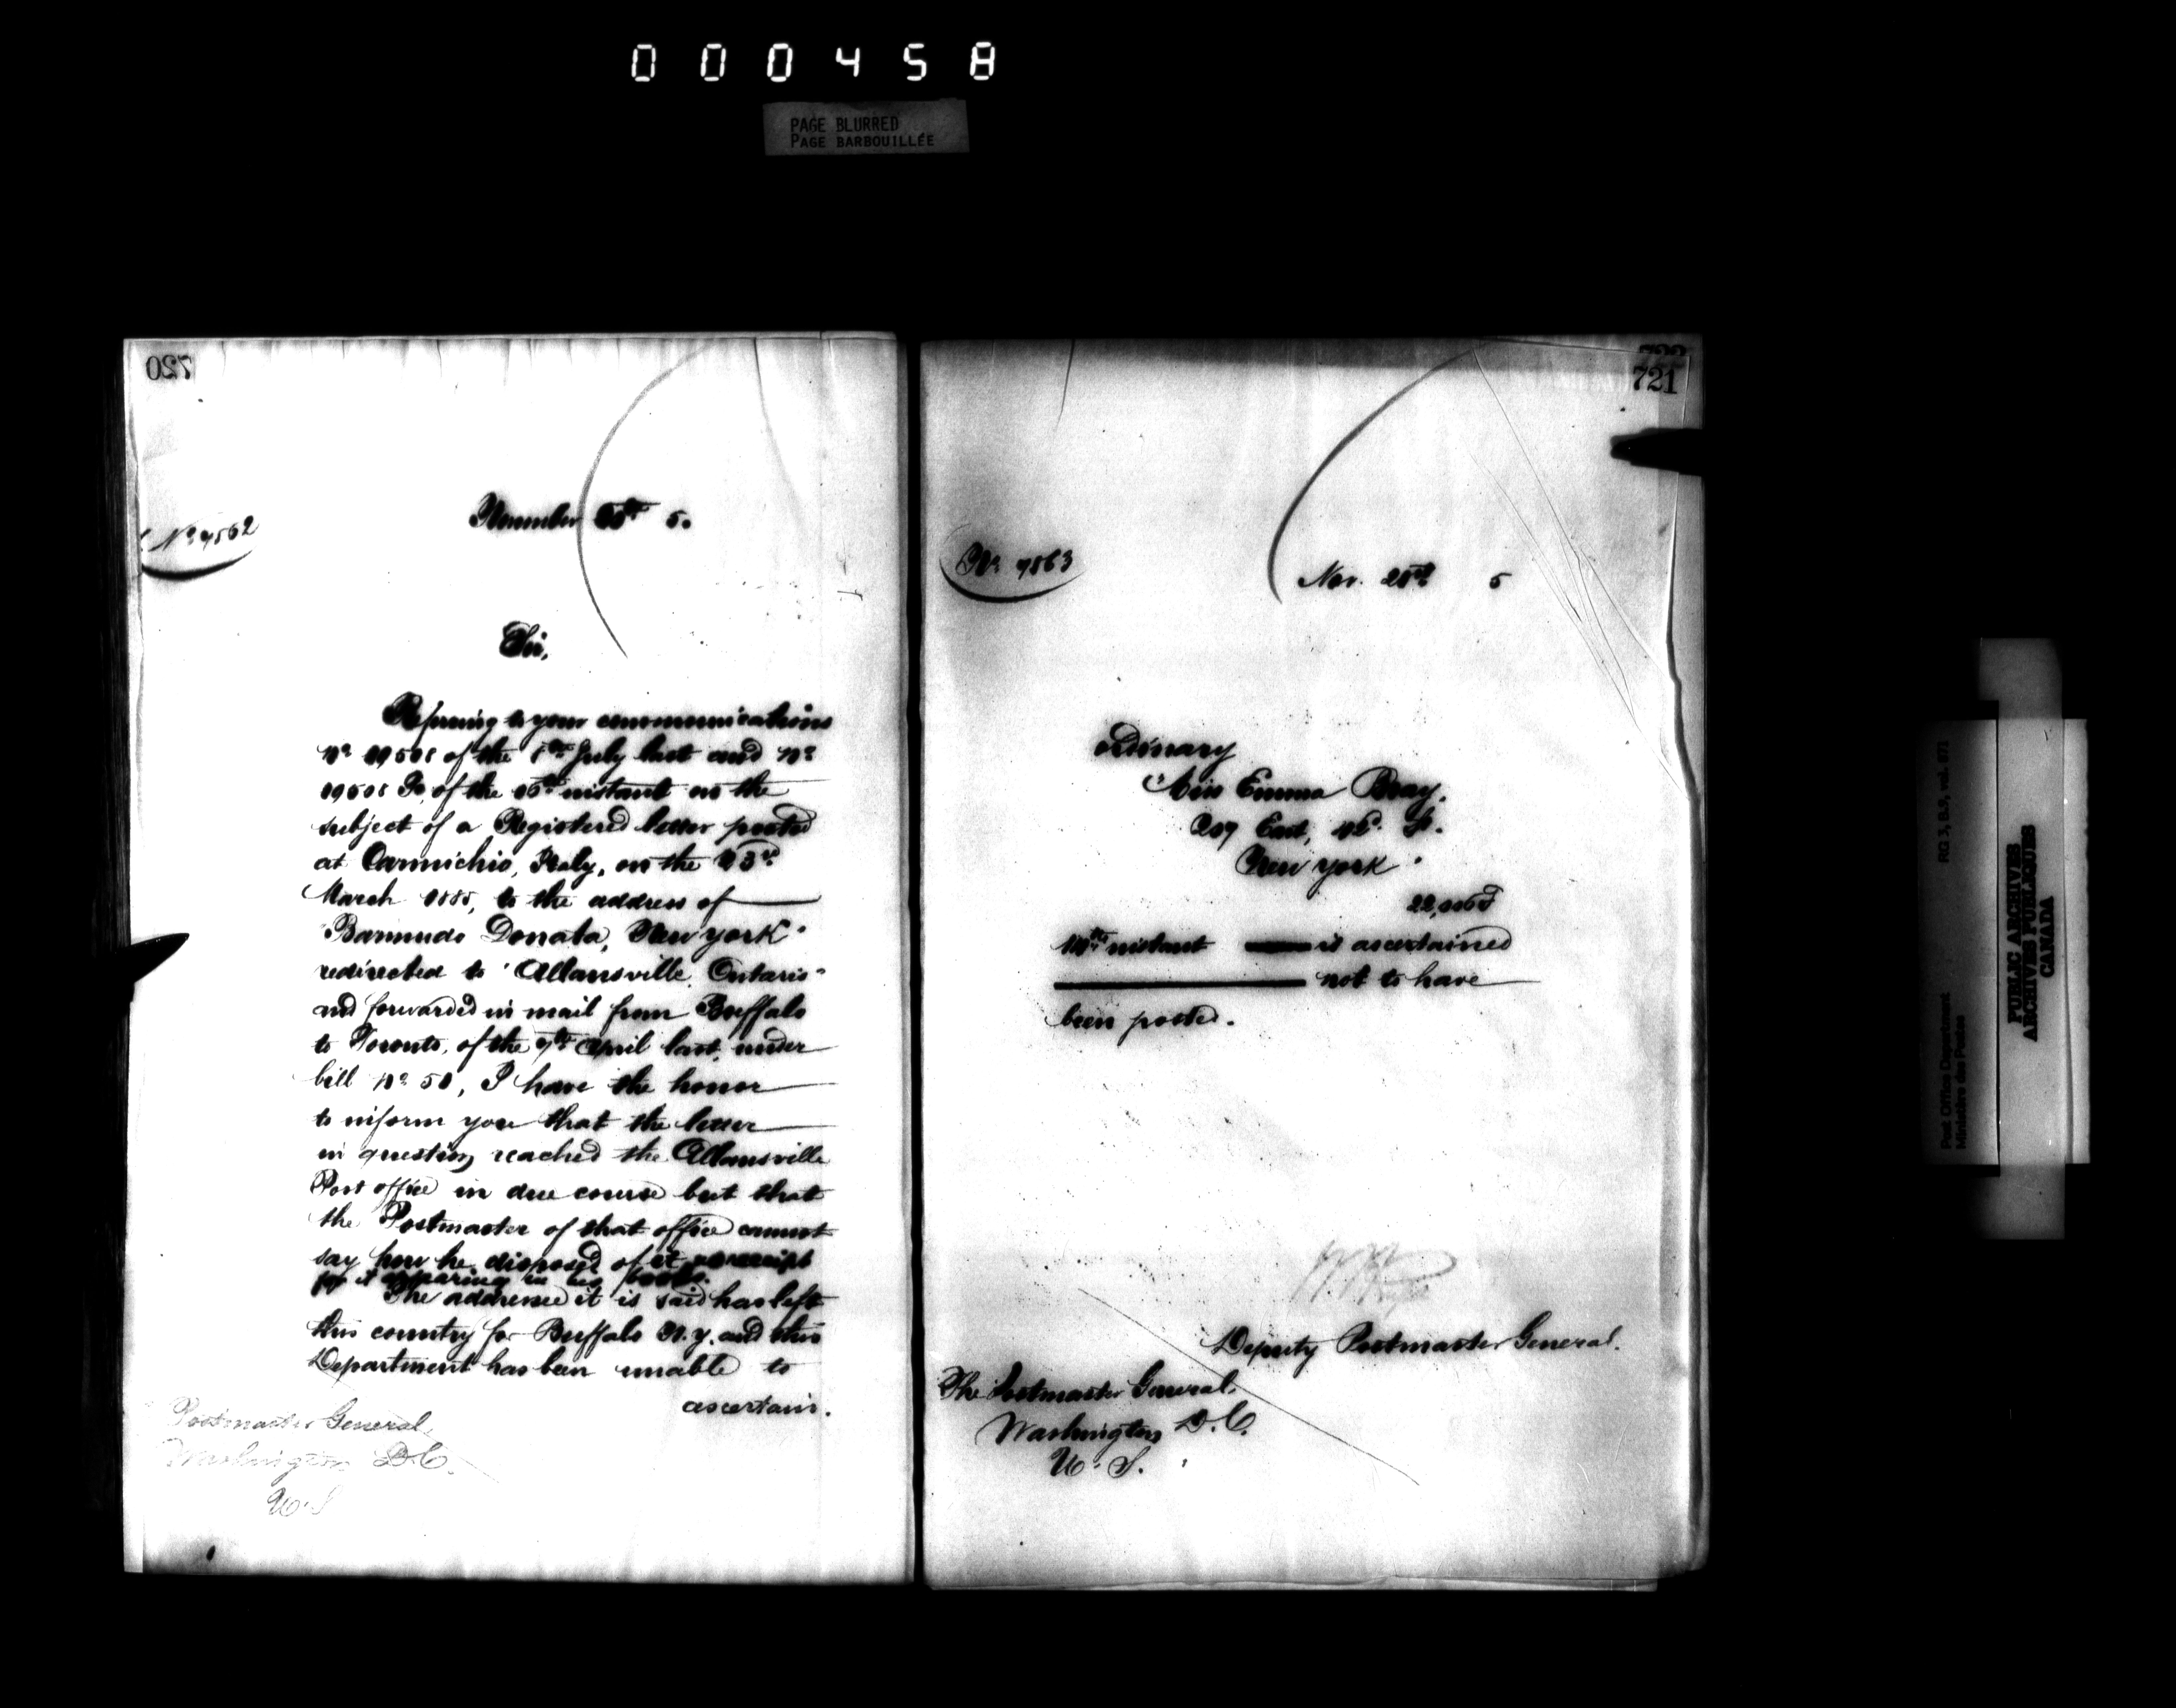 000458
PAGE BLURRED
PAGE BARBOUILLÉE
720
No 9562
November 5.
Sir,
Referring to your communications
No of the July last and No
of the instant on the
subject of a Registered letter posted
at Carmichio, Italy, on the 23rd
March 1885, to the address of
"Barmudo Donata, New York"
redirected to "Allansville, Ontario"
and forwarded in mail from Buffalo
to Toronto, of the 7th April last, under
bill No 51, I have the honor
to inform you that the letter
in question, reached the Allansville
Post office in due course but that
the Postmaster of that office cannot
say how he disposed of it no receipt
for it appearing in his books.
The addressee it is said has left
this country for Buffalo N.Y. and this
Department has been unable to
ascertain.
Postmaster General,
Washington D.C.
U.S
722
721
No 9563
Nov. 5
ordinary
"Miss Emma Bray,
207 East, St.
New York"
instant it is ascertained
not to have
been posted.
Deputy Postmaster General.
The Postmaster General,
Washington D.C.
U.S.
Post Office Department
Ministère des Postes
RG 3, B.9, vol. 871
PUBLIC ARCHIVES
ARCHIVES PUBLIQUES
CANADA